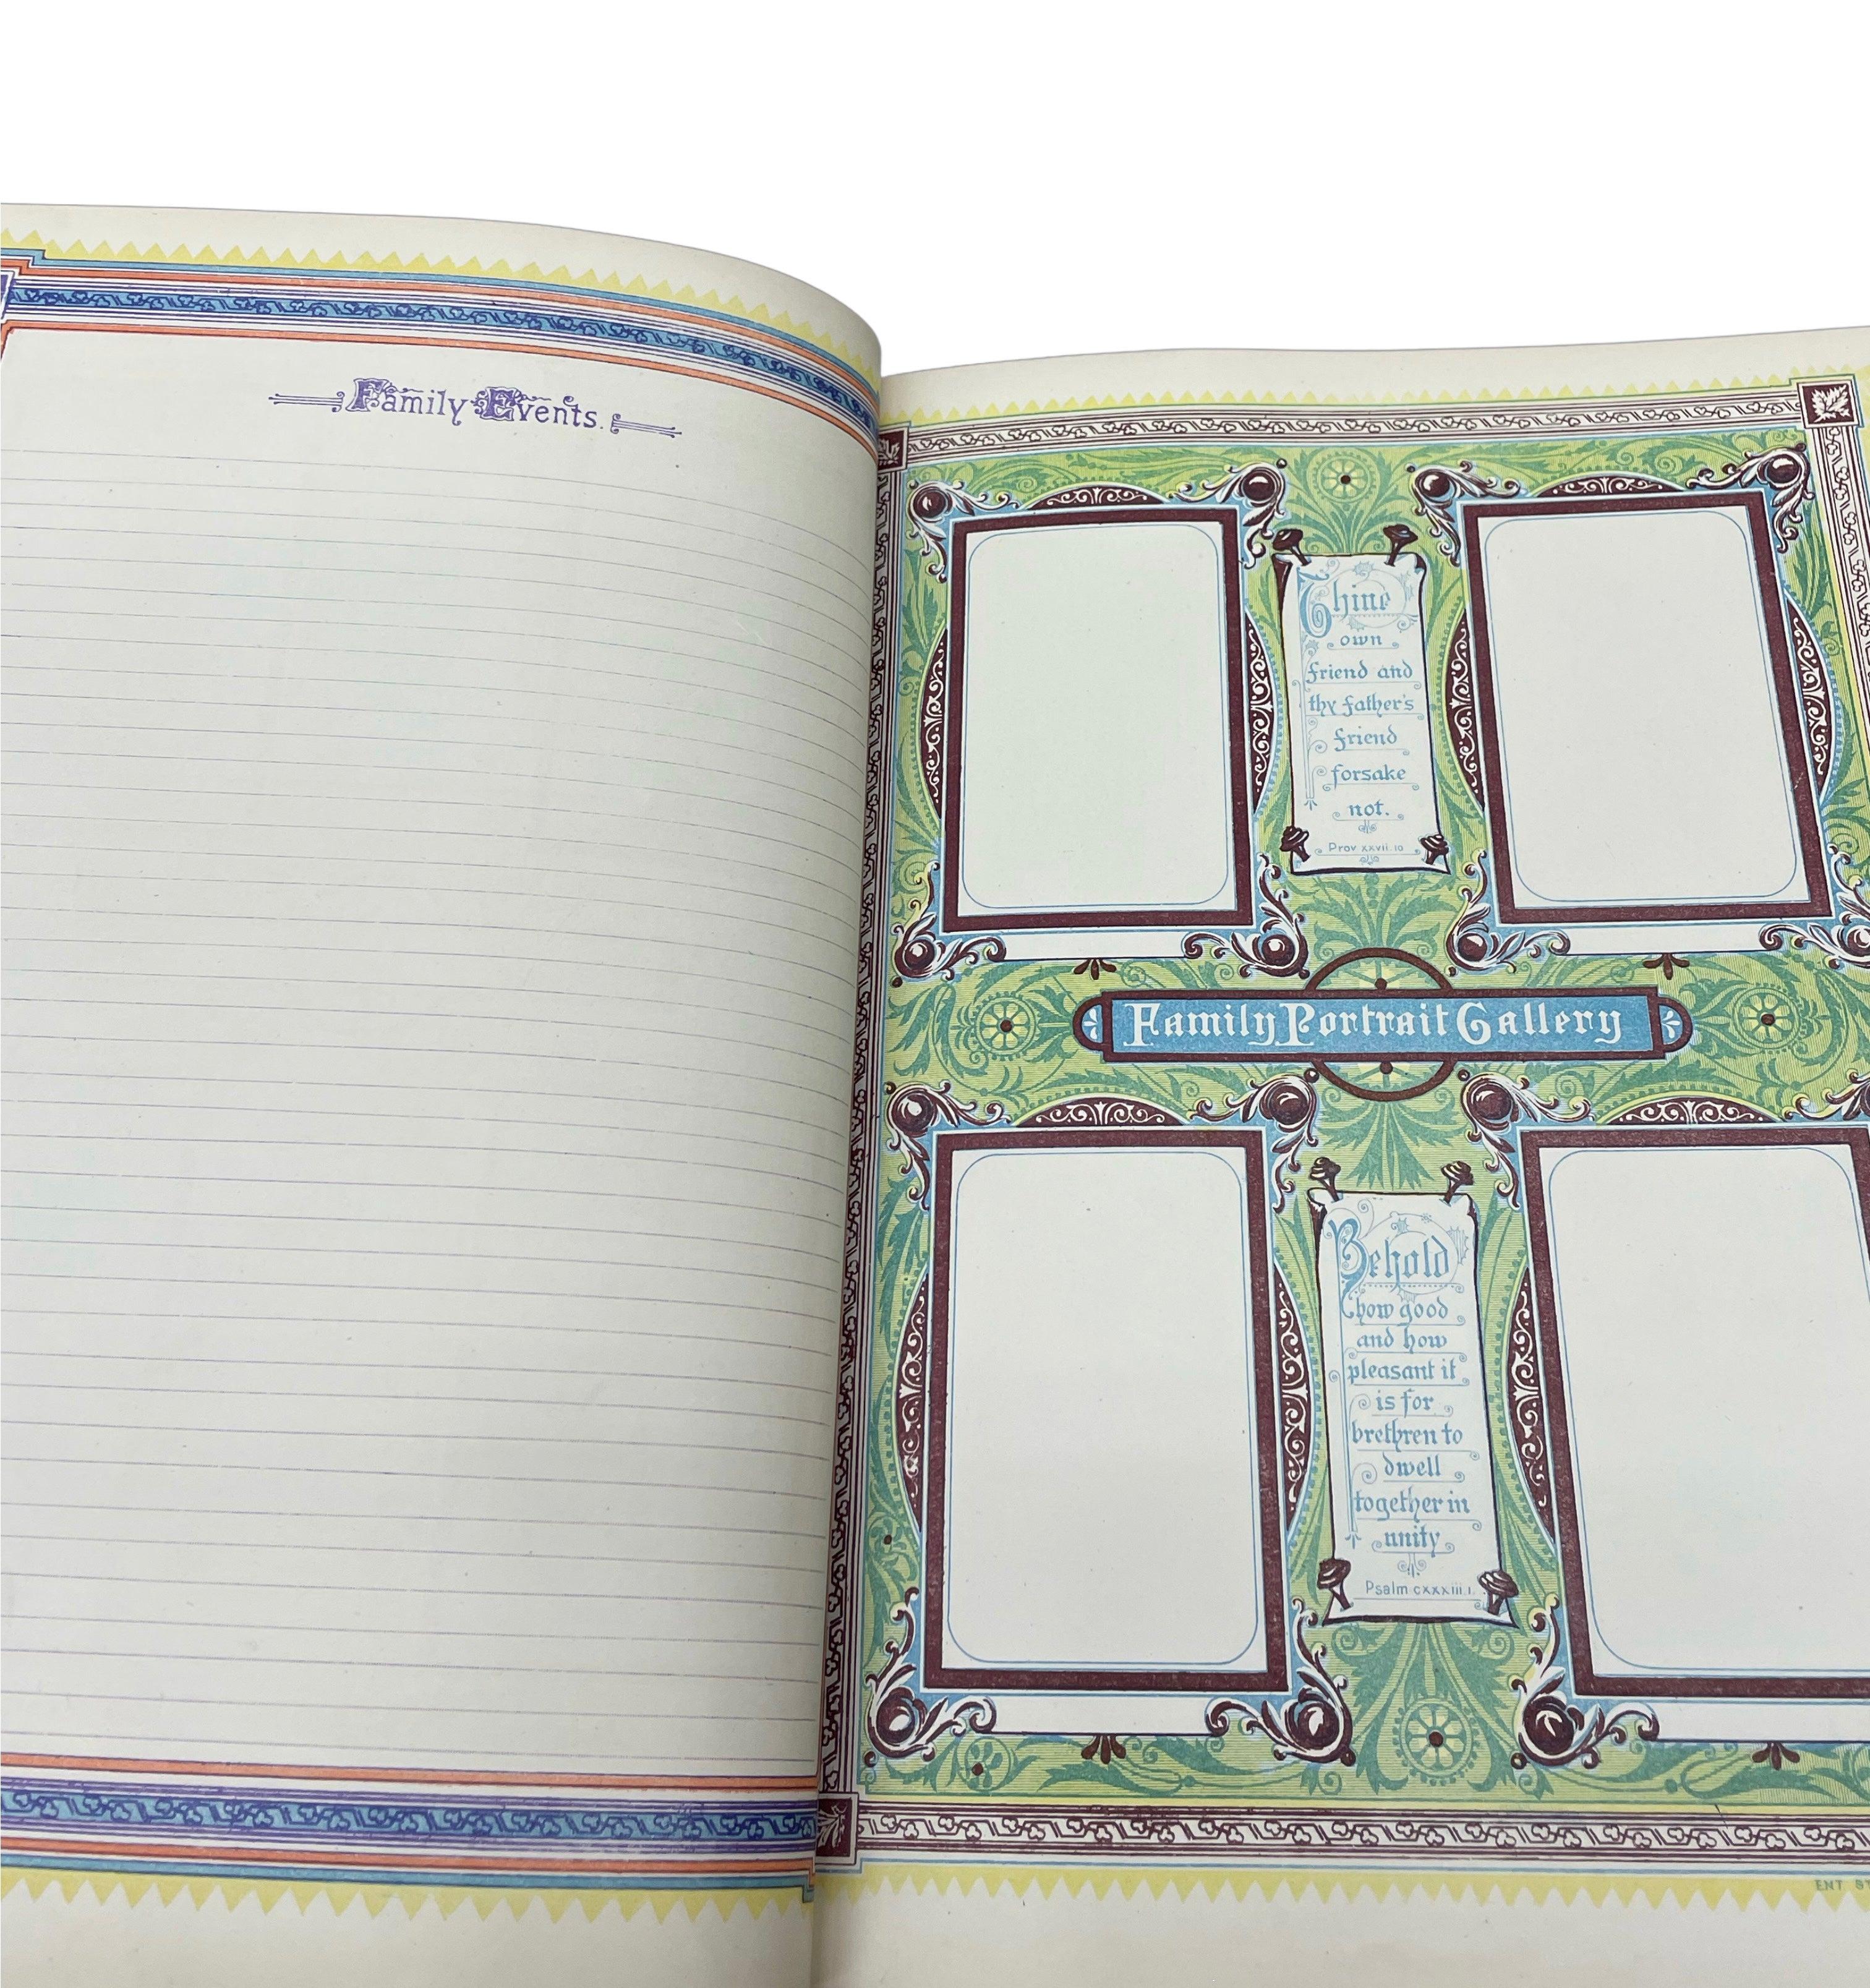 Family Events.
Thine
own
friend and
thy father's
friend
forsake
not.
Prov xxvii. 10
Family Portrait Gallery
Behold
how good
and how
pleasant it
is for
brethren to
dwell
together in
unity
Psalm cxxxiii. 1.
ENT